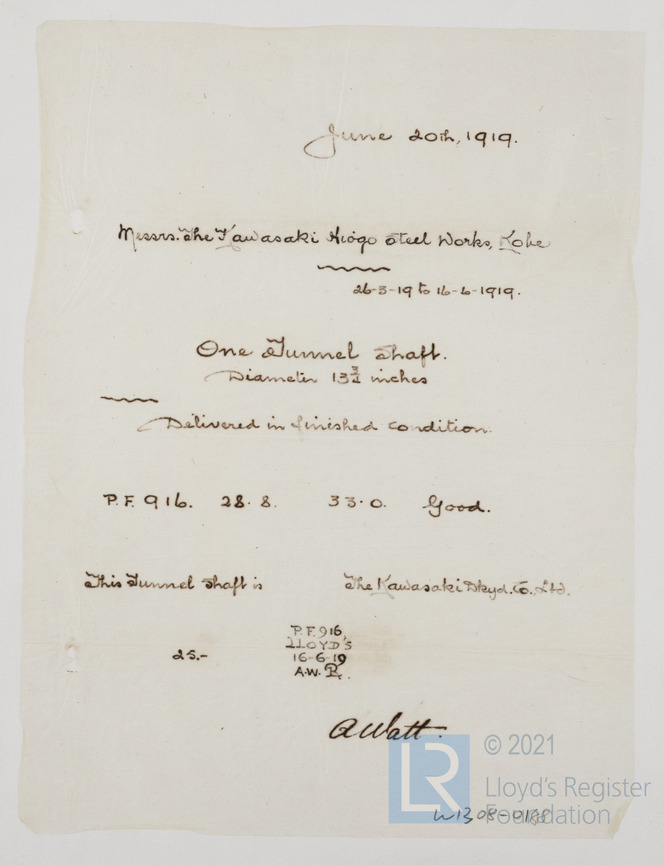 June 20th, 1919.
Messrs. The Kawasaki Hiogo Steel Works, Kobe
26-3-19 to 16-6-1919.
One Tunnel Shaft.
Diameter 13¾ inches
Delivered in finished condition.
P.F. 916. 28.8. 33.0. Good.
This Tunnel Shaft is The Kawasaki Dkyd. Co. Ltd.
P.F. 916
LLOYD'S
25.- 16-6-19
A.W.
A Watt.
LR © 2021
Lloyd's Register
Foundation
W1308-0188